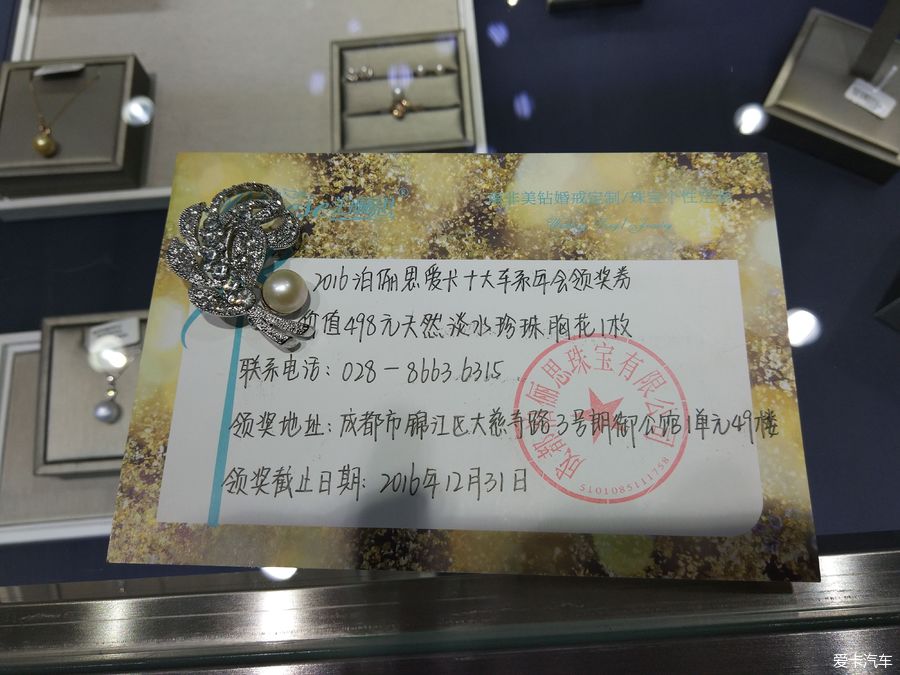 非美钻婚戒定制/珠宝个性定制
2016泊俪思爱卡十大车系年会领奖券
值498元天然淡水珍珠胸花1枚
联系电话：028-86636315
领奖地址：成都市锦江区大慈寺路3号明御公馆1单元49楼
领奖截止日期：2016年12月31日
俪思珠宝有限公司
5101085111758
爱卡汽车